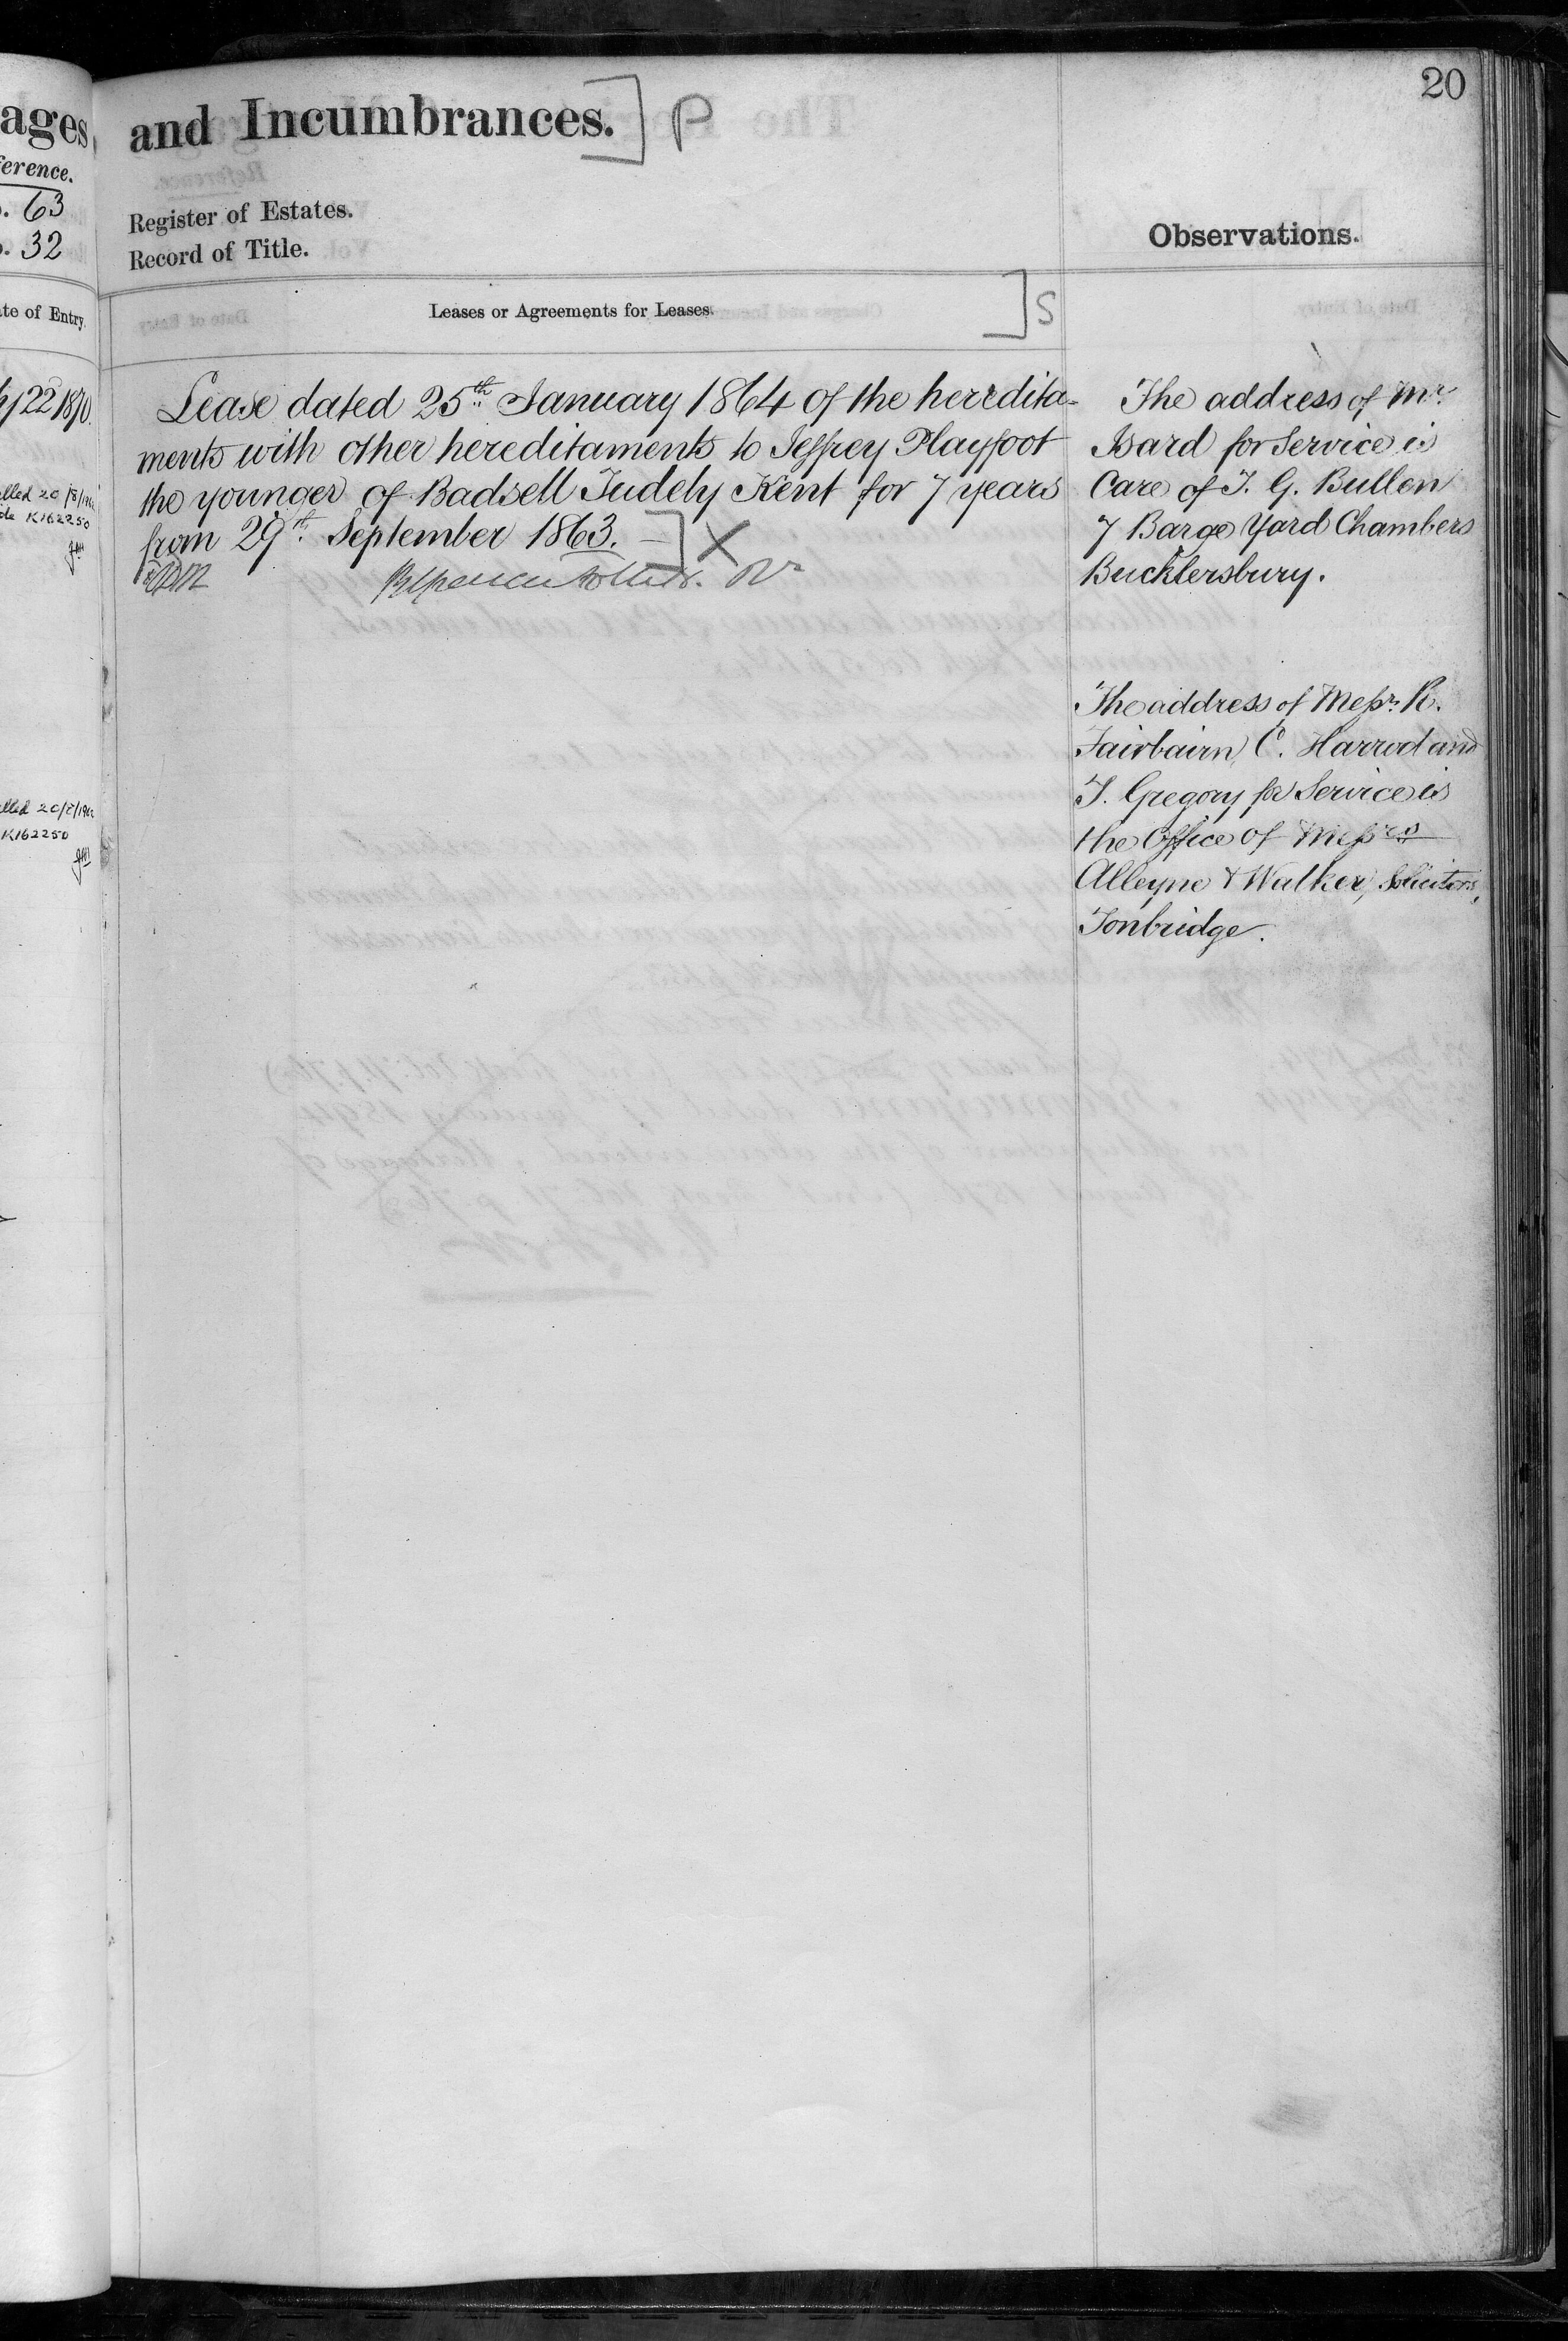 20
ages
and Incumbrances. ] P
ference.
. 63
. 32
Register of Estates.
Record of Title.
Observations.
te of Entry.
Leases or Agreements for Leases. ] S
22 1870.
Lease dated 25th January 1864 of the heredita-
ments with other hereditaments to Jeffrey Playfoot
the younger of Badsell Tudely Kent for 7 years
from 29th September 1863. — ] X
The address of Mr.
Isard for Service is
Care of T. G. Bullen
7 Barge Yard Chambers
Bucklersbury.
lled 20/8/196
K162250
The address of Messrs. R.
Fairbairn, C. Harrod and
T. Gregory for Service is
the Office of Messrs
Alleyne & Walker, Solicitors,
Tonbridge.
lled 20/8/196
K162250